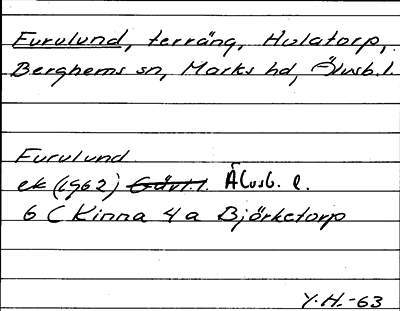 Furulund, terräng, Hulatorp,
Berghems sn, Marks hd, Älvsb. l.
Furulund
ek (1962) Gävl.l. Älvsb. l.
6 C Kinna 4 a Björketorp
Y.H.-63